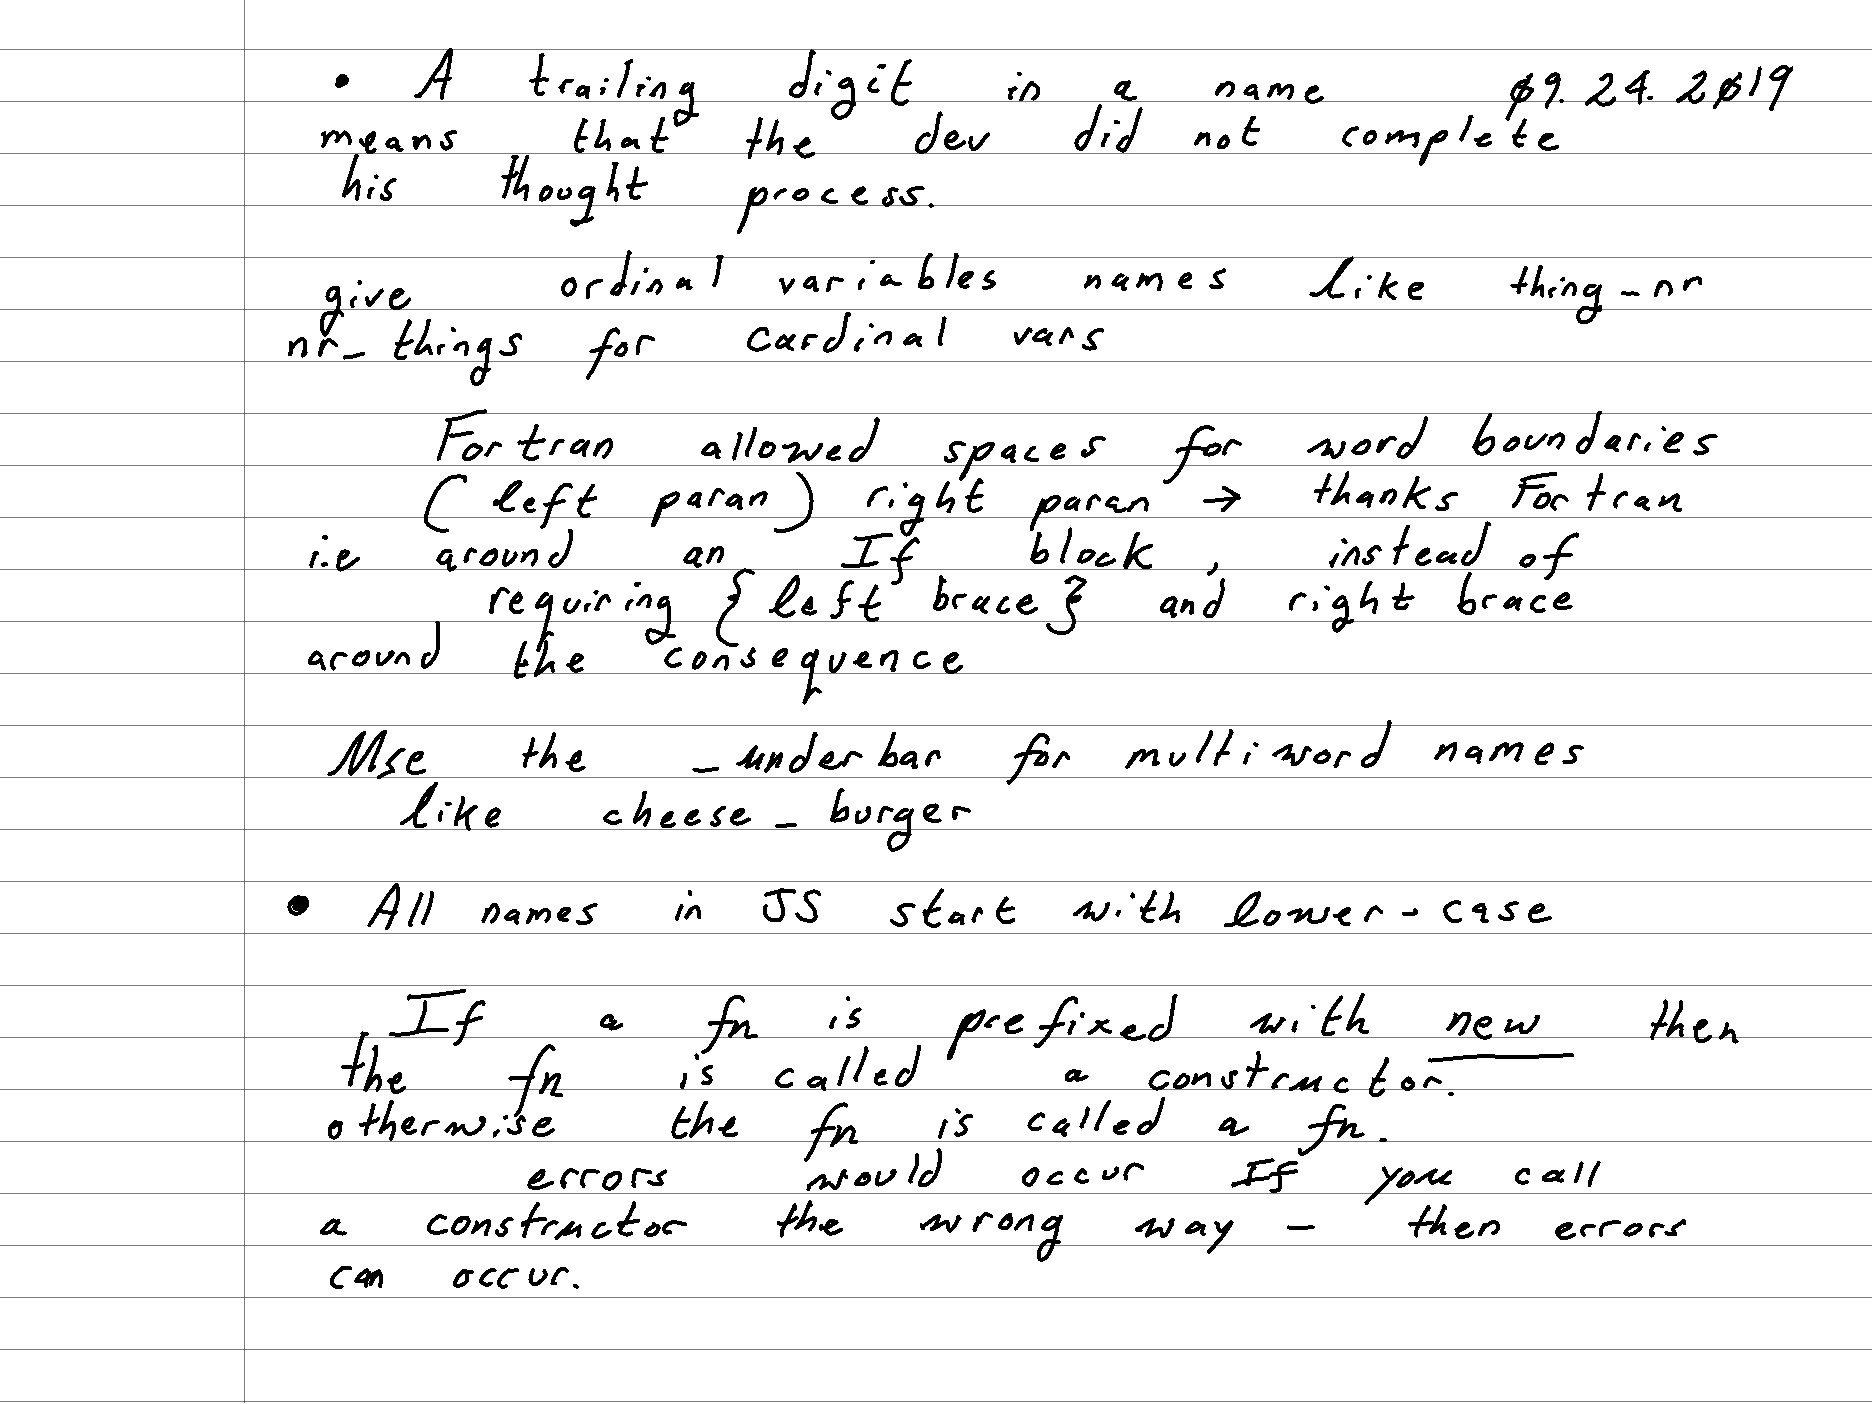 • A trailing digit in a name 09.24.2019
means that the dev did not complete
his thought process.
give ordinal variables names like thing_nr
nr_things for cardinal vars
Fortran allowed spaces for word boundaries
(left paran) right paran → thanks Fortran
i.e around an If block, instead of
requiring {left brace} and right brace
around the consequence
Use the _underbar for multiword names
like cheese_burger
• All names in JS start with lower-case
If a fn is prefixed with new then
the fn is called a constructor.
otherwise the fn is called a fn.
errors would occur If you call
a constructor the wrong way - then errors
can occur.